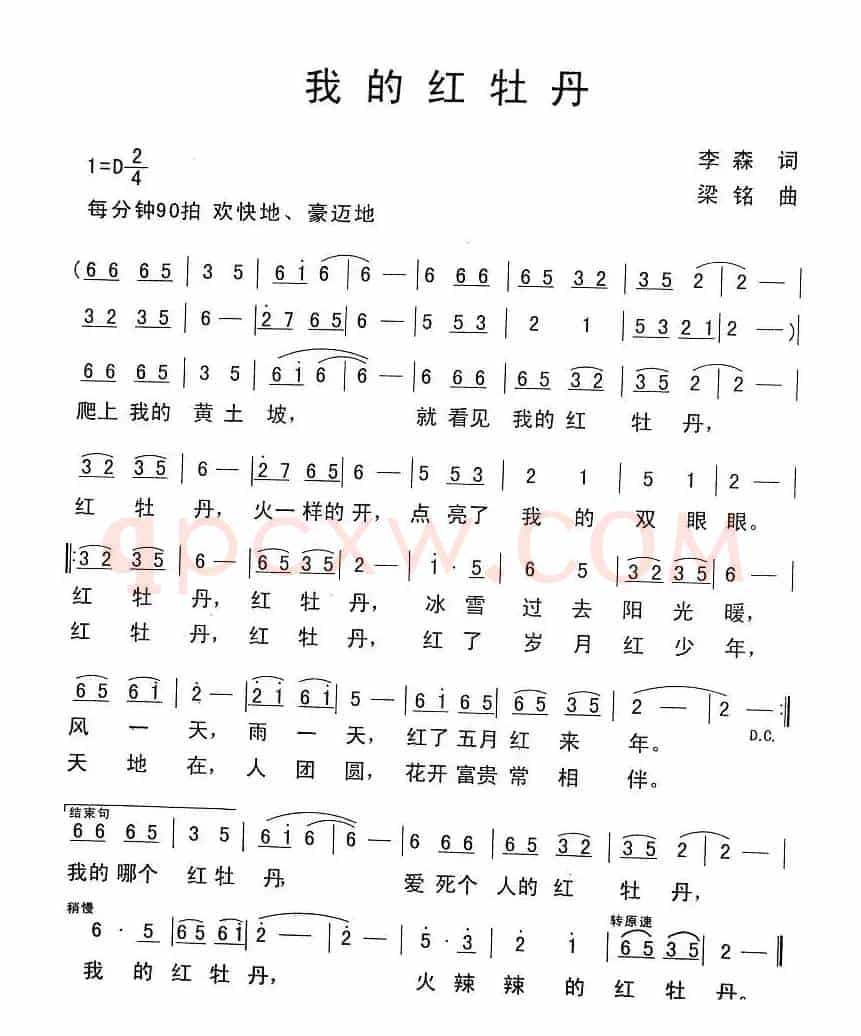 我的红牡丹
1=D 2/4
李森 词
每分钟90拍 欢快地、豪迈地
梁铭 曲
(66 65 | 3 5 | 6i6 | 6 — | 6 66 | 65 32 | 35 2 | 2 — |
32 35 | 6 — | 27 65 | 6 — | 5 53 | 2 1 | 5321 | 2 —) |
66 65 | 3 5 | 6i6 | 6 — | 6 66 | 65 32 | 35 2 | 2 — |
爬上 我的 黄土 坡, 就看见 我的红 牡 丹,
32 35 | 6 — | 27 65 | 6 — | 5 53 | 2 1 | 5 1 | 2 — |
红 牡 丹, 火一样的开, 点 亮了 我 的 双 眼 眼。
qpcxw.com
‖: 32 35 | 6 — | 65 35 | 2 — | i · 5 | 6 5 | 32 35 | 6 — |
红 牡 丹, 红 牡 丹, 冰 雪 过 去 阳 光 暖,
红 牡 丹, 红 牡 丹, 红 了 岁 月 红 少 年,
65 6i | 2 — | 2i 6i | 5 — | 6i 65 | 65 35 | 2 — | 2 — :‖
D.C.
风 一 天, 雨 一 天, 红了五月红 来 年。
天 地 在, 人 团 圆, 花开富贵常 相 伴。
结束句
66 65 | 3 5 | 6i6 | 6 — | 6 66 | 65 32 | 35 2 | 2 — |
我的哪个 红牡 丹, 爱 死个 人的红 牡 丹,
稍慢 转原速
6 · 5 | 65 6i | 2 — | 2 — | 5 · 3 | 2 i | 65 35 | 2 — ‖
我 的 红 牡 丹, 火 辣 辣 的 红 牡 丹。